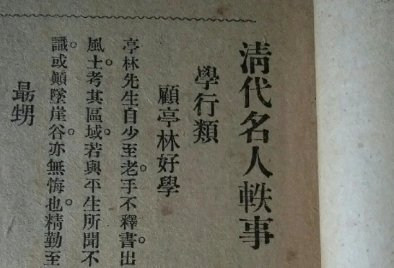 清代名人軼事
學行類
顧亭林好學
亭林先生自少至老。手不釋書。出
風土。考其區域。若與平生所聞不
識。或顛墜崖谷。亦無悔也。精勤至
勗甥